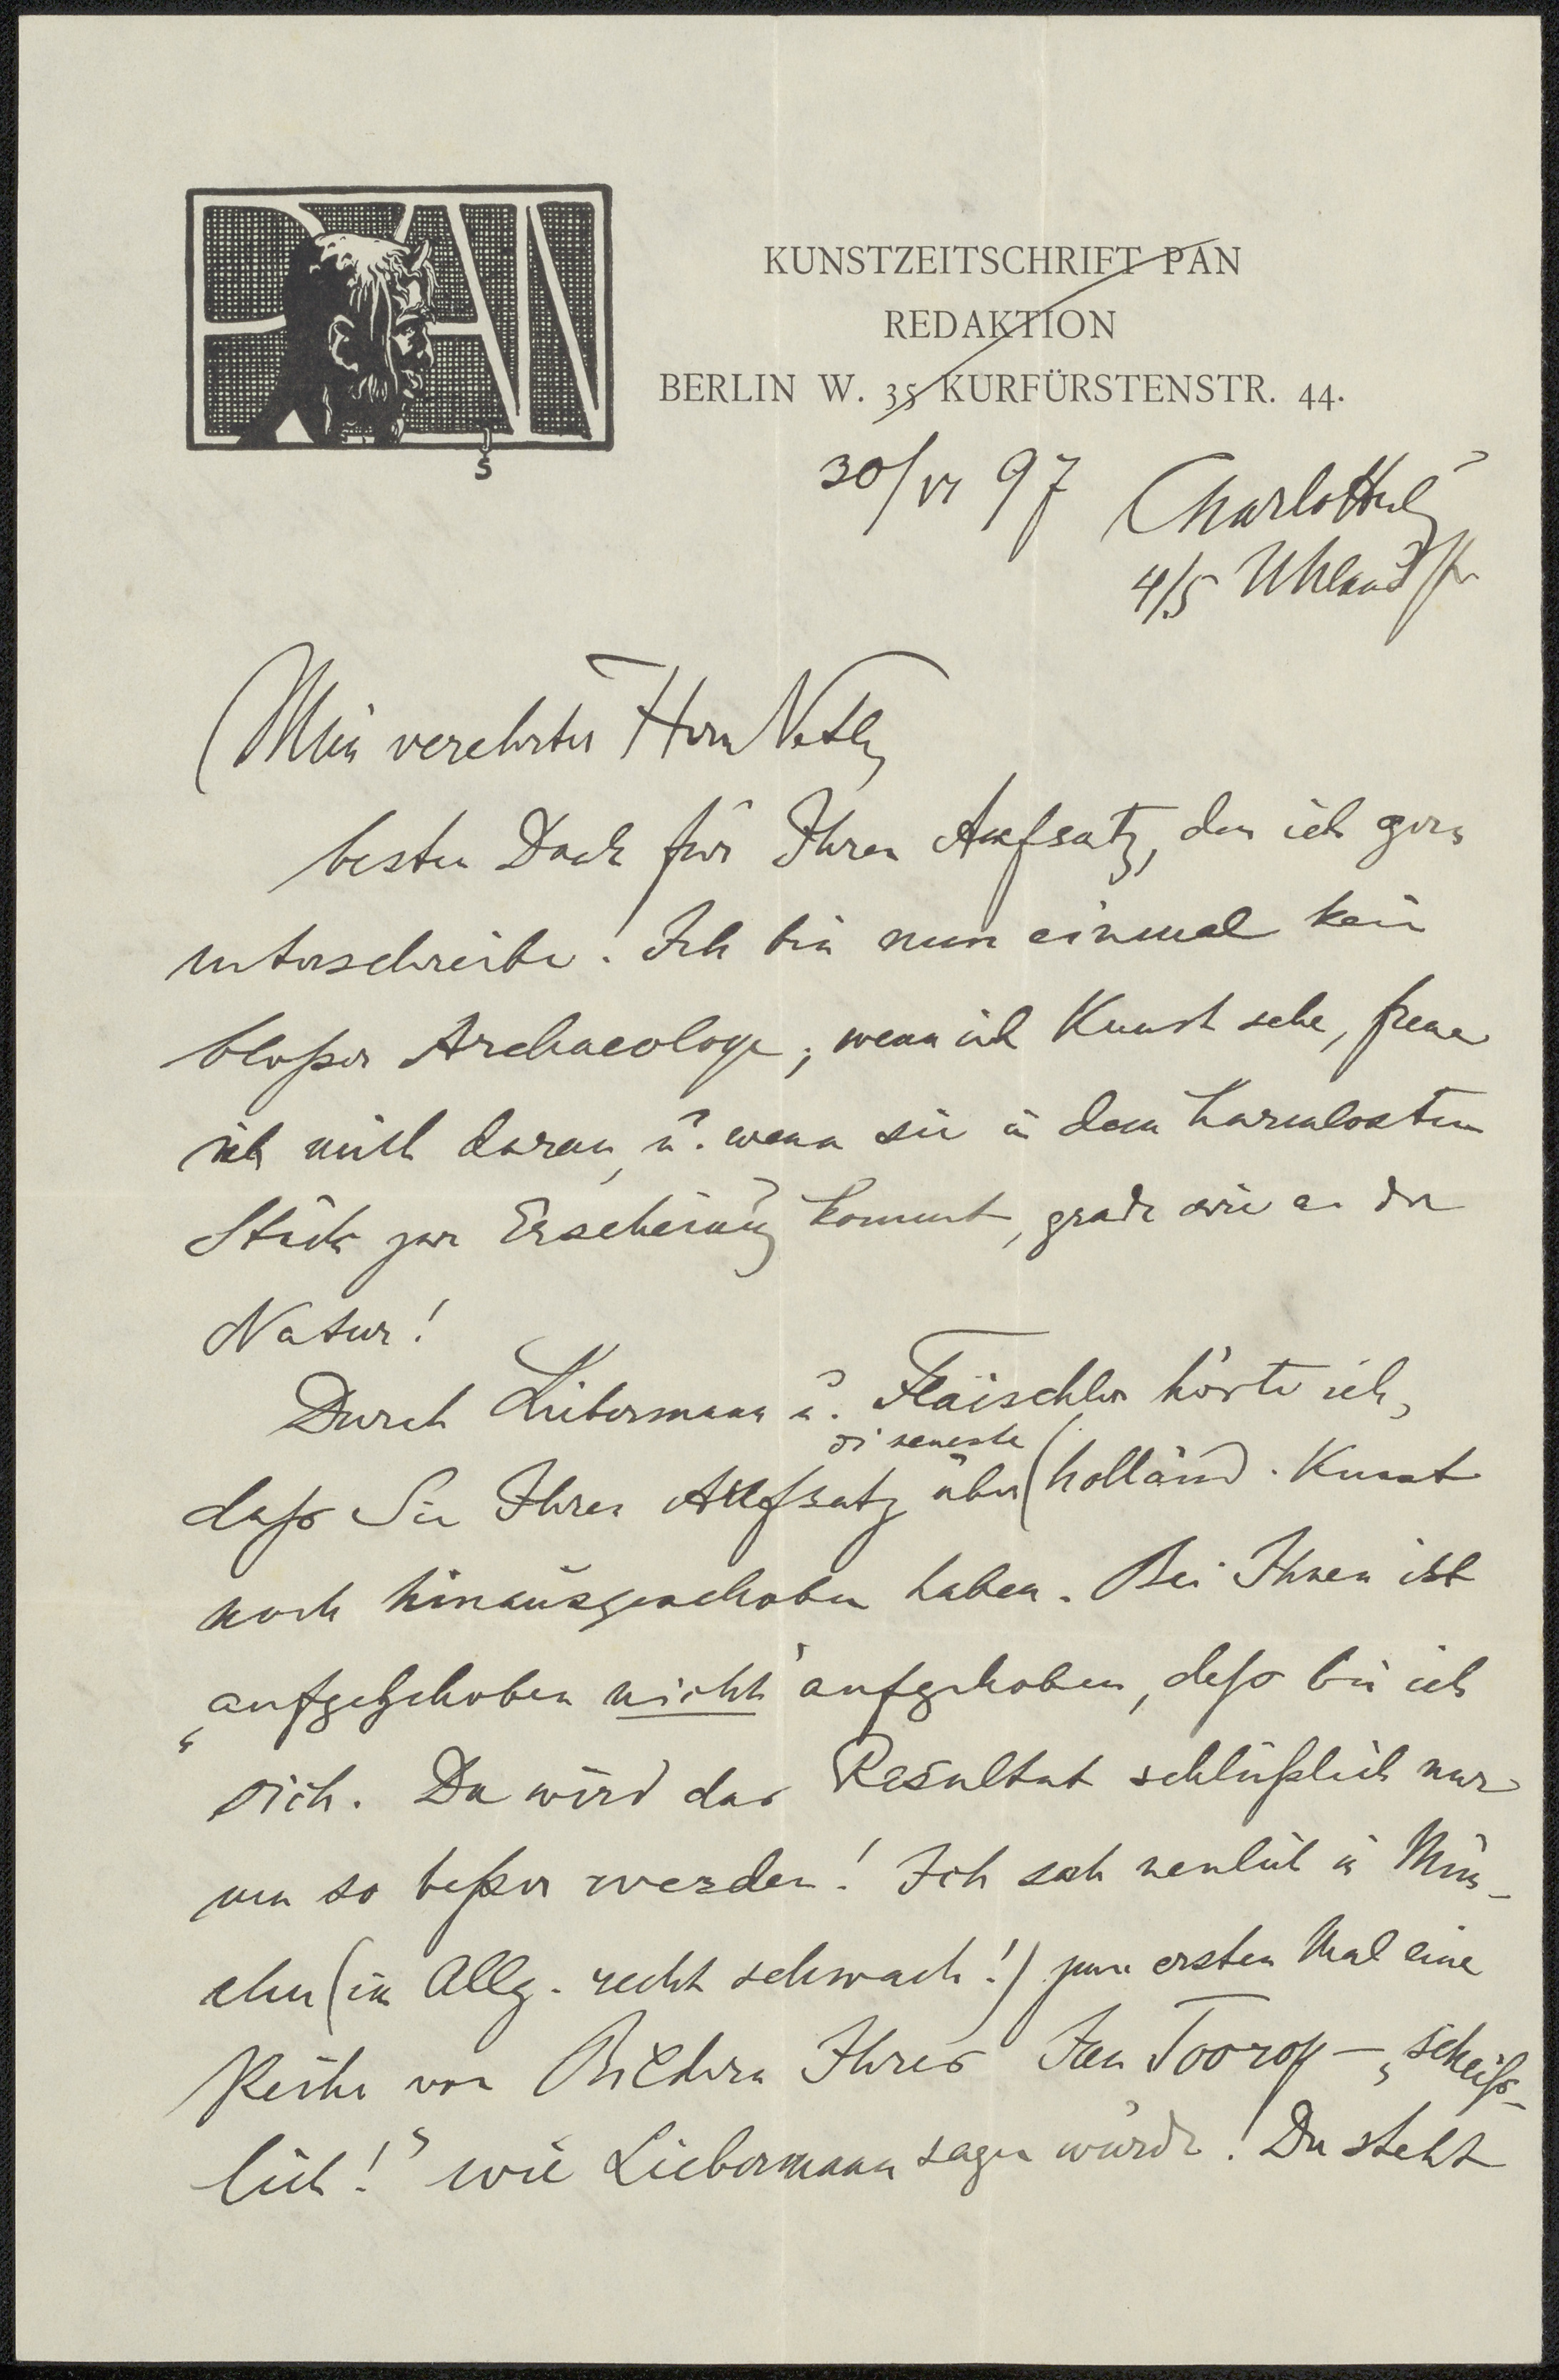 PAN
JS
KUNSTZEITSCHRIFT PAN
REDAKTION
BERLIN W. 35 KURFÜRSTENSTR. 44.
30/VI 97 Charlottbg
4/5 Uhlandstr
Mein verehrter Herr Veth,
besten Dank für Ihren Aufsatz, den ich gern
unterschreibe! Ich bin nun einmal kein
bloßer Archaeologe; wenn ich Kunst sehe, freue
ich mich daran, u. wenn sie in dem harmlosten
Stück zur Erscheinung kommt, grade wie an der
Natur!
Durch Liebermann u. Flaischlen hörte ich,
daß Sie Ihren Aufsatz über die neueste holländ. Kunst
noch hinausgeschoben haben. Bei Ihnen ist
„aufgeschoben nicht aufgehoben, deß bin ich
sich. Da wird das Resultat schließlich nur
um so beßer werden! Ich sah neulich in Mün-
chen (im Allg. recht schwach!) zum ersten Mal eine
Reihe von Bildern Ihres Jan Toorop – „scheiß-
lich!“ wie Liebermann sagen würde! Da steht